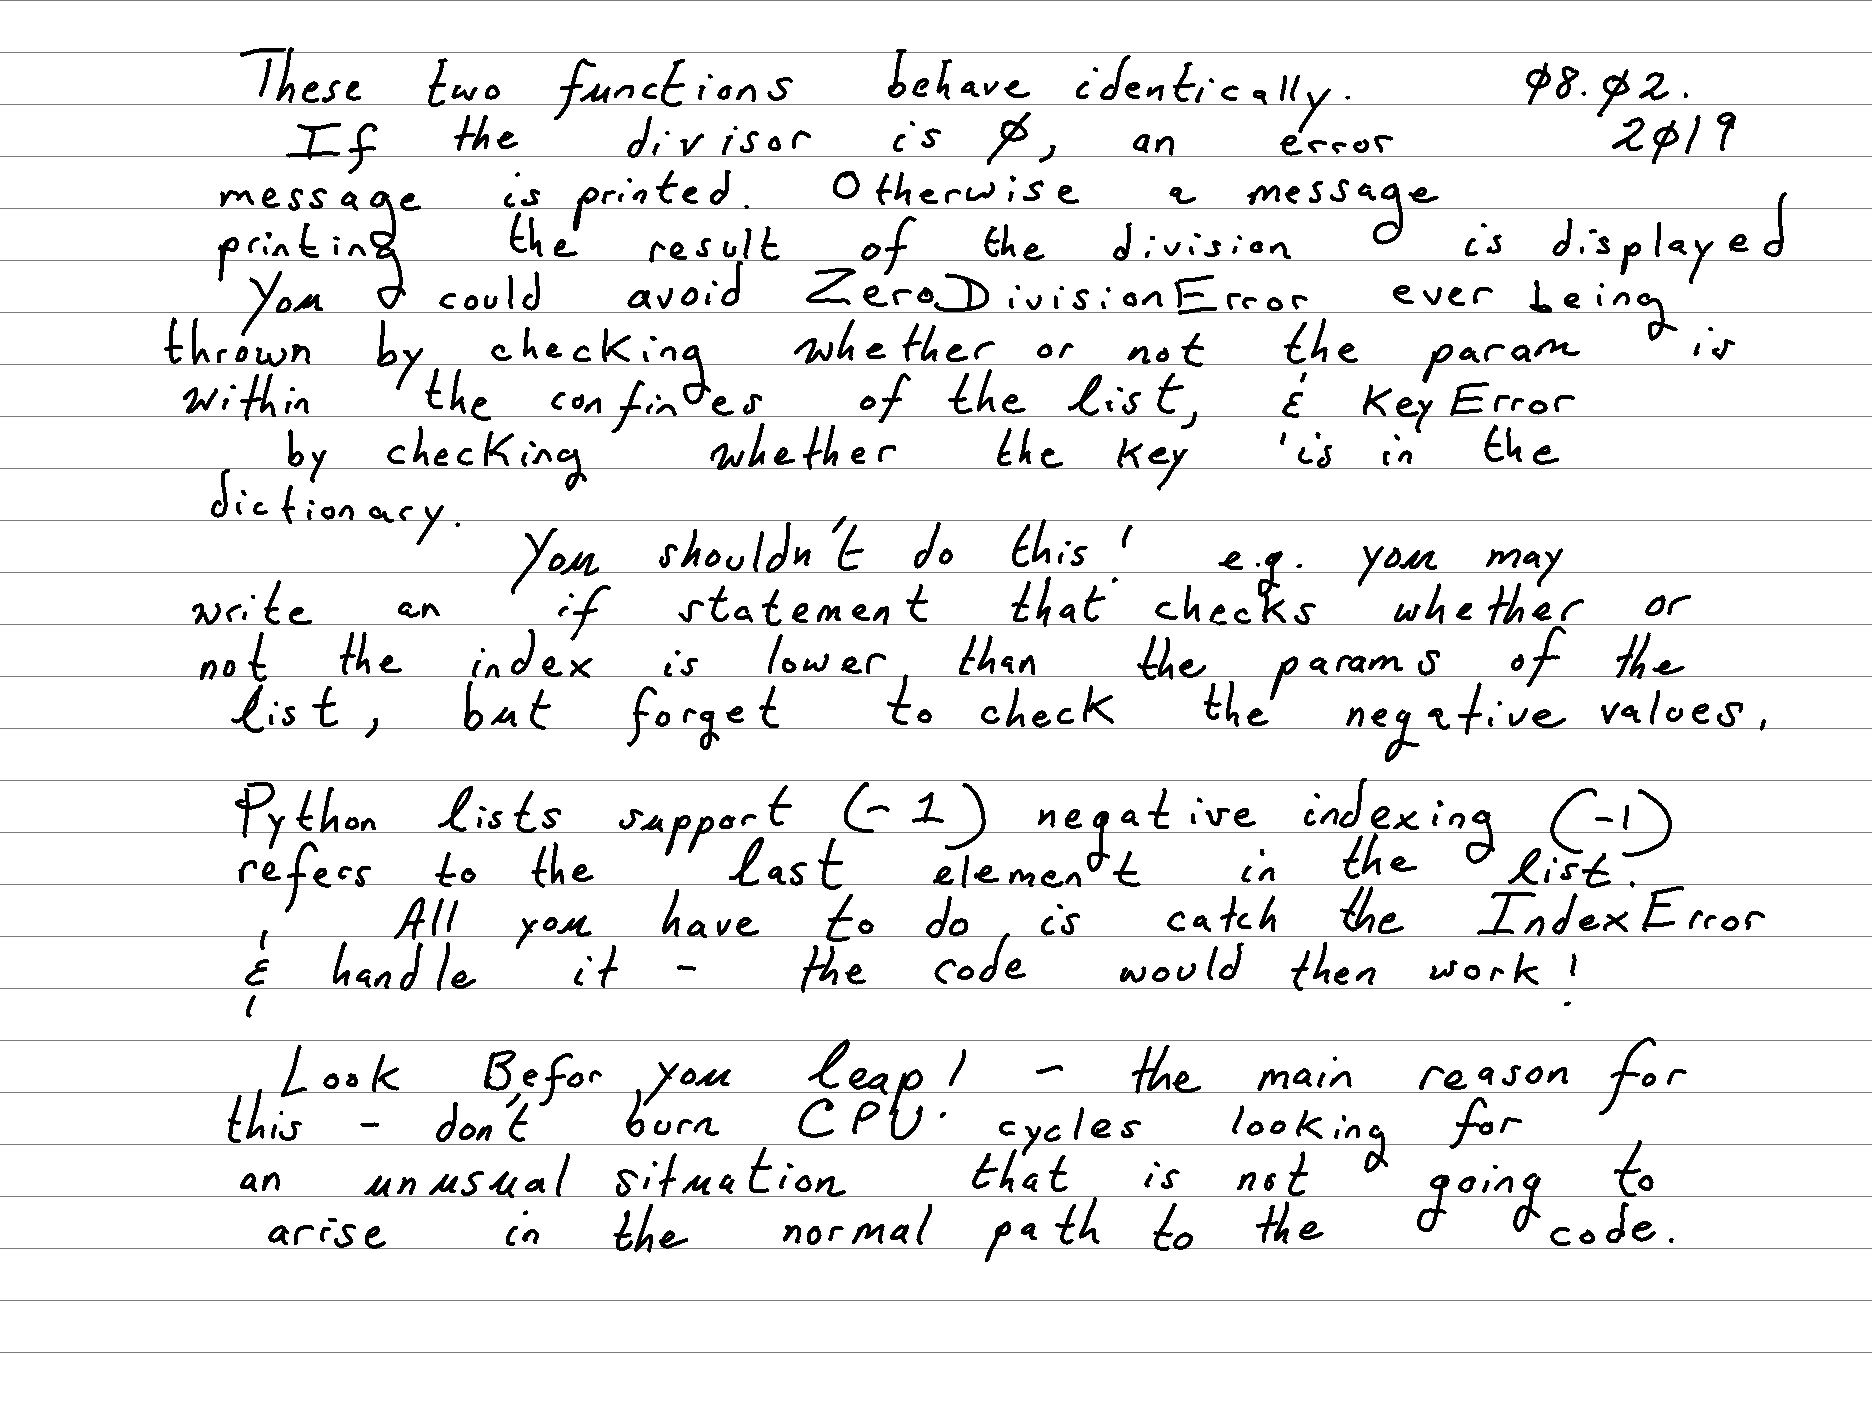 These two functions behave identically. Ø8.Ø2.
If the divisor is Ø, an error 2Ø19
message is printed. Otherwise a message
printing the result of the division is displayed
You could avoid ZeroDivisionError ever being
thrown by checking whether or not the param is
within the confines of the list, & KeyError
by checking whether the key is in the
dictionary.
You shouldn't do this! e.g. you may
write an if statement that checks whether or
not the index is lower than the params of the
list, but forget to check the negative values.
Python lists support (-1) negative indexing (-1)
refers to the last element in the list.
All you have to do is catch the IndexError
& handle it - the code would then work!
Look Befor you leap! - the main reason for
this - don't burn CPU cycles looking for
an unusual situation that is not going to
arise in the normal path to the code.